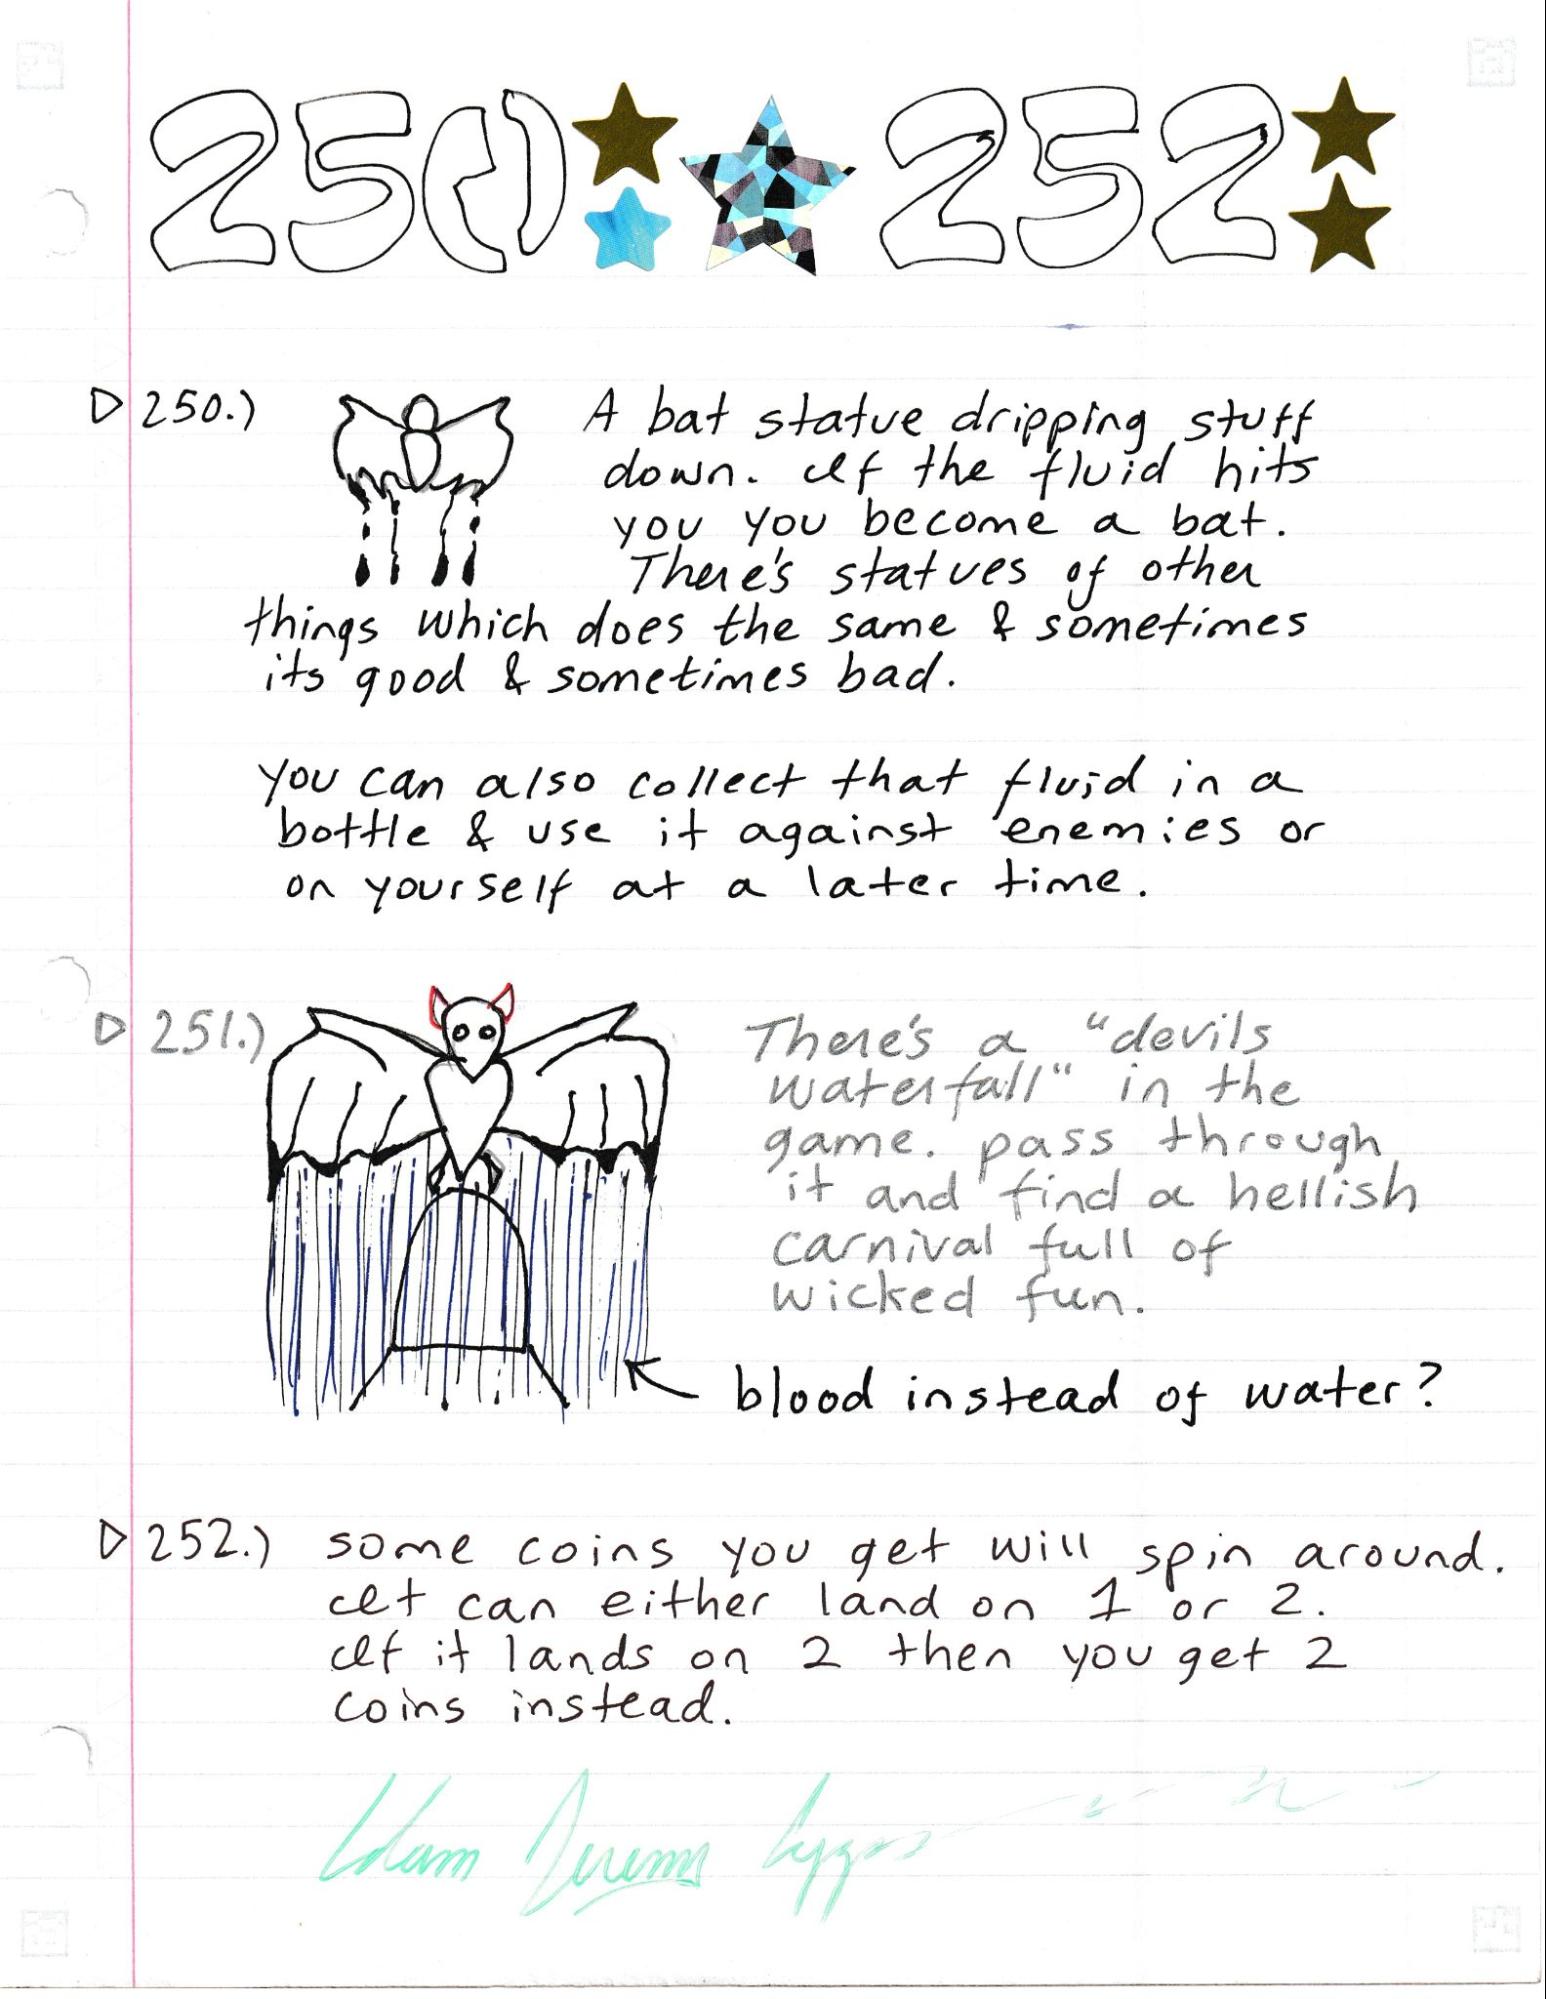 250 252
▷ 250.) A bat statue dripping stuff
down. If the fluid hits
you you become a bat.
There's statues of other
things which does the same & sometimes
its good & sometimes bad.
you can also collect that fluid in a
bottle & use it against enemies or
on yourself at a later time.
▷ 251.) There's a "devils
waterfall" in the
game. pass through
it and find a hellish
carnival full of
wicked fun.
blood instead of water?
▷ 252.) some coins you get will spin around.
It can either land on 1 or 2.
If it lands on 2 then you get 2
coins instead.
Adam Jeremy